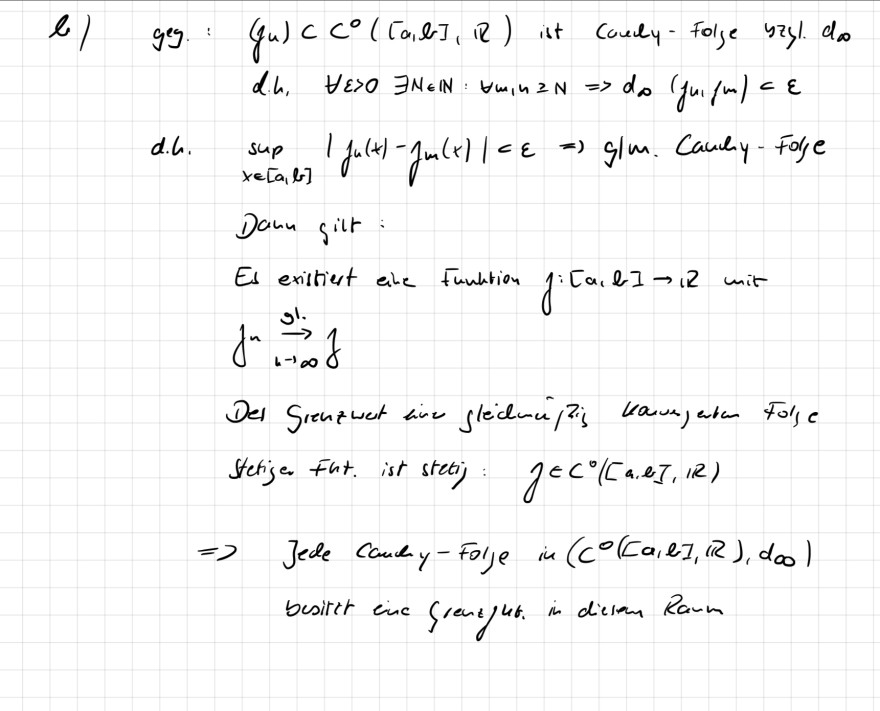 b) geg. : (fn) ⊂ C⁰([a,b], ℝ) ist Cauchy-Folge bzgl. d∞
d.h. ∀ε>0 ∃N∈ℕ : ∀m,n ≥ N => d∞ (fn, fm) < ε
d.h. sup x∈[a,b] |fn(x) - fm(x)| < ε => glm. Cauchy-Folge
Dann gilt :
Es existiert eine Funktion f: [a,b] → ℝ mit
fn gl. → n→∞ f
Der Grenzwert einer gleichmäßig konvergenten Folge
stetiger Fkt. ist stetig : f ∈ C⁰([a,b], ℝ)
=> Jede Cauchy-Folge in (C⁰([a,b], ℝ), d∞)
besitzt eine Grenzfkt. in diesem Raum